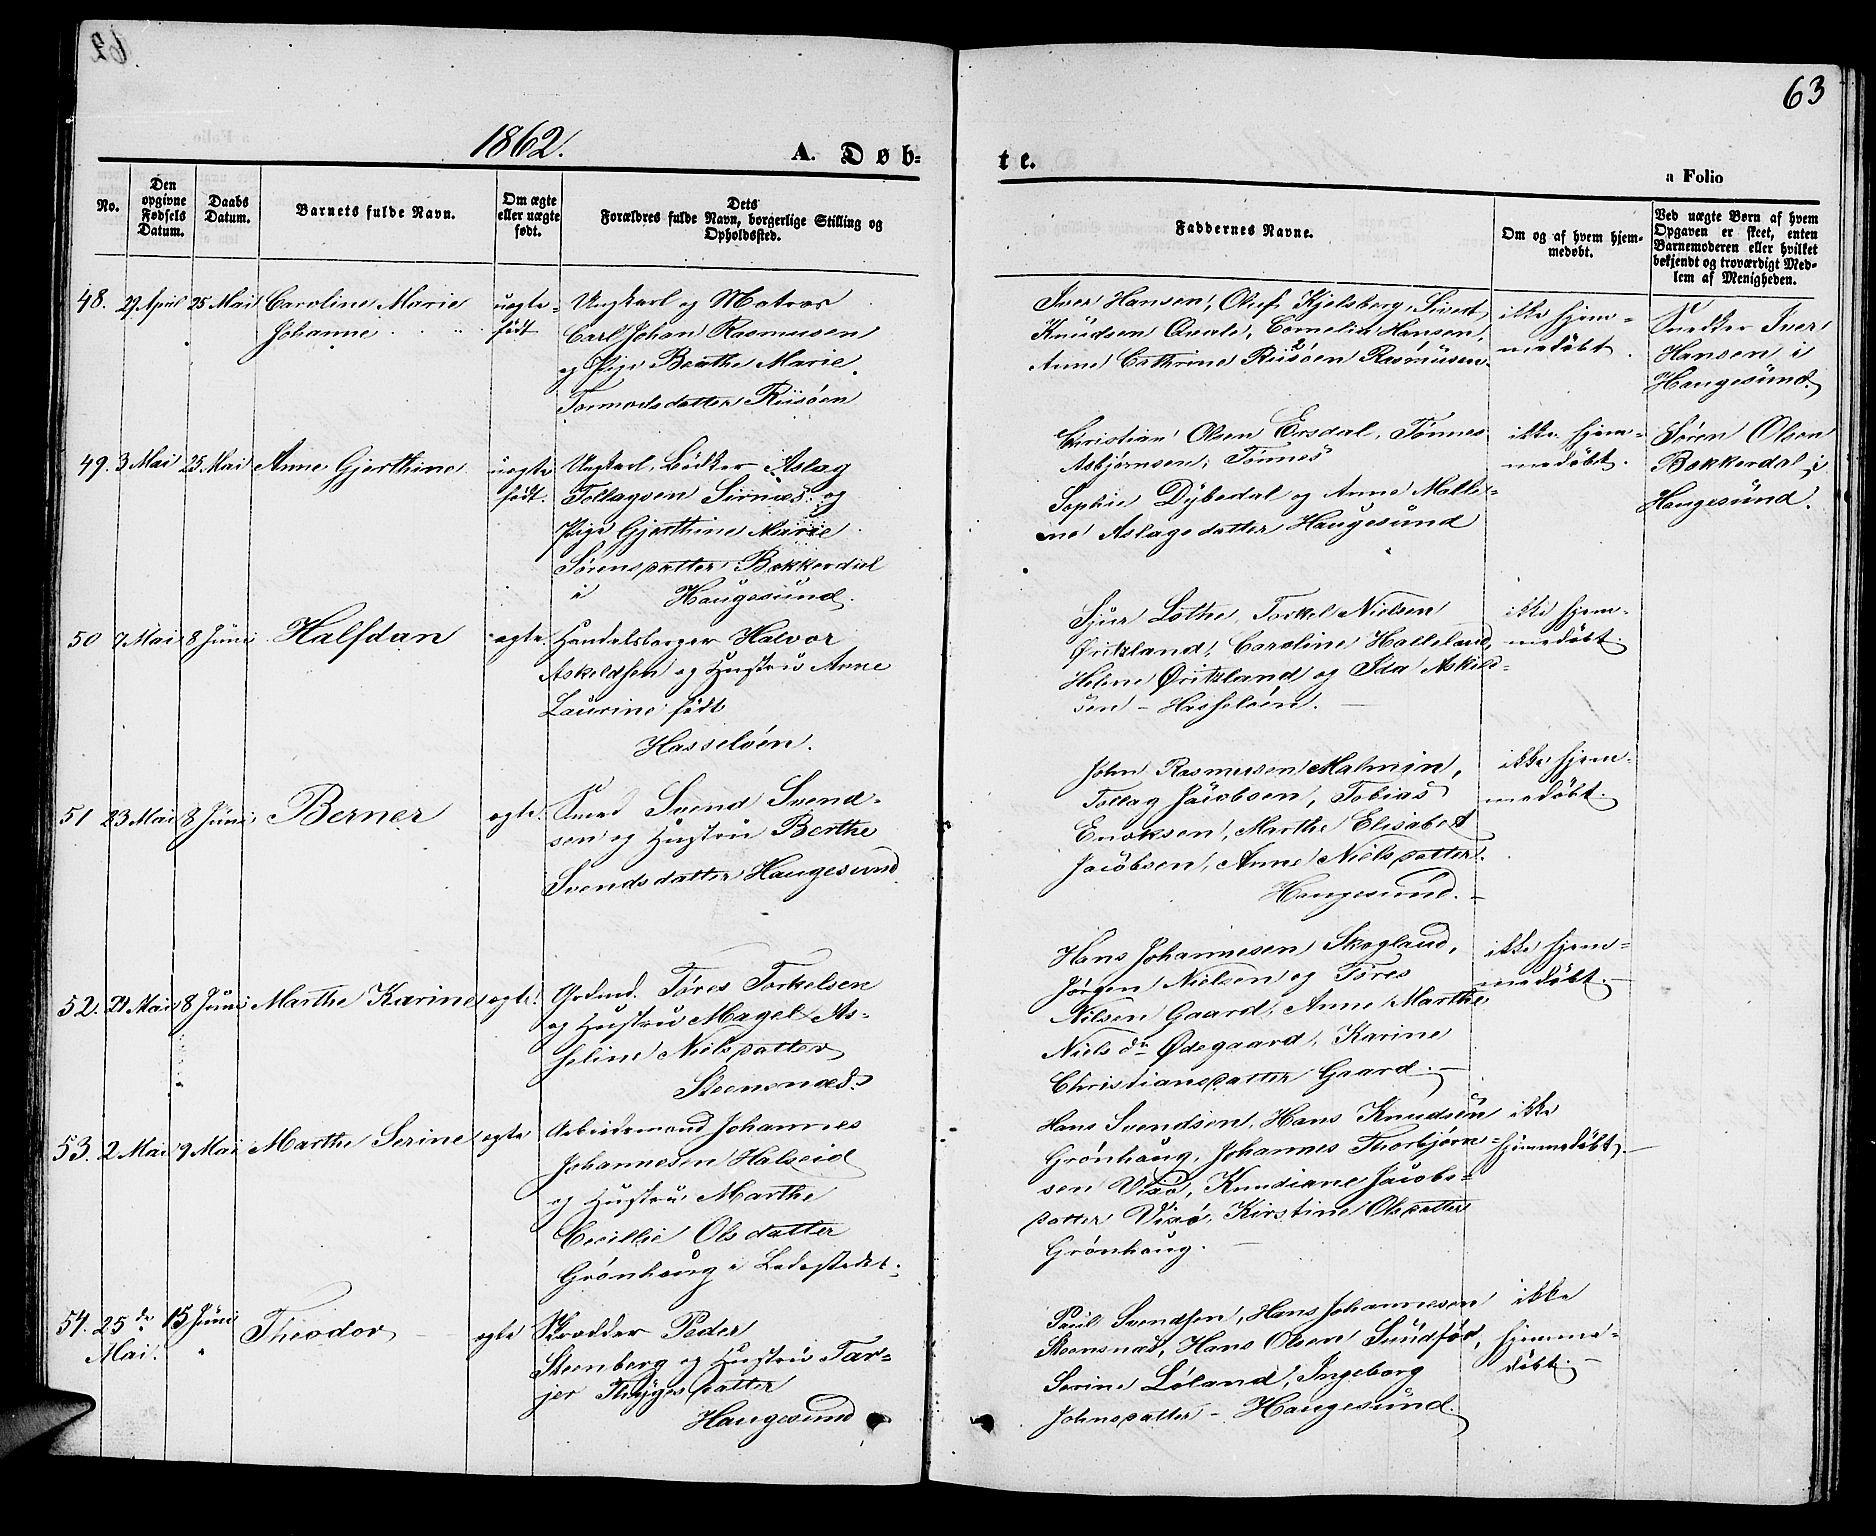 63
1862.
A. Døb-
te.
a Folio
No.
Den opgivne Fødsels Datum.
Daabs Datum.
Barnets fulde Navn.
Om ægte eller uægte født.
Dets Forældres fulde Navn, borgerlige Stilling og Opholdssted.
Faddernes Navne.
Om og af hvem hjemmedøbt.
Ved uægte Børn af hvem Opgaven er skeet, enten Barnemoderen eller hvilket bekjendt og troværdigt Medlem af Menigheden.
48. 29 April 25 Mai Caroline Marie
Johanne
uægte
født
Ungkarl og Matros
Carl Johan Rasmusen
og Pige Berthe Marie
Tormodsdatter Riisøen
Iver Hansen, Oluf Kjelsberg, Sivert
Knudsen Qvale, Cornelia Hansen,
Anne Cathrine Riisøen Rasmusen
ikke hjem-
medøbt.
Snedker Iver
Hansen i
Haugesund.
49. 3 Mai 25 Mai Anne Gjerthine
uægte
født.
Ungkarl, Bødker Aslag
Tollagsen Sirnæs og
Pige Gjerthine Marie
Sørensdatter Bakkerdal
i Haugesund.
Christian Olsen Ersdal, Tønnes
Asbjørnsen, Tønnes
Sophie Dybedal og Anne Malle-
ne Aslagsdatter Haugesund
ikke hjem-
medøbt.
Søren Olsen
Bakkerdal i
Haugesund.
50 7 Mai 8 Juni Halfdan
ægte.
Handelsborger Halvor
Askeldsen og Hustru Anne
Laurine født
Hasseløen.
Sjur Lothe, Torkel Nielsen
Øritzland, Caroline Halleland,
Helene Øritzland og Ida Askild-
sen - Hasseløen.
ikke hjem-
medøbt.
51 23 Mai 8 Juni Berner
ægte.
Smed Svend Svend-
sen og Hustru Berthe
Svendsdatter Haugesund
John Rasmusen Malmin,
Tollag Jacobsen, Tobias
Enoksen, Marthe Elisabet
Jacobsen, Anne Nielsdatter.
Haugesund.
ikke hjem-
medøbt.
52. 21 Mai 8 Juni Marthe Karine
ægte.
Grdmd. Tøres Torkelsen
og Hustru Magel As-
seline Nielsdatter
Steensnæs.
Hans Johannesen Skogland,
Jørgen Nielsen og Tøres
Nilsen Gaard, Anne Marthe
Niels dr Ødegaard, Karine
Christiansdatter Gaard.
ikke hjem-
medøbt.
53. 2 Mai 9 Mai Marthe Serine
ægte
Arbeidsmand Johannes
Johannesen Halseid
og Hustru Marthe
Cecilie Olsdatter
Grønhaug i Ladestedet.
Hans Svendsen, Hans Knudsen
Grønhaug, Johannes Thorbjørn-
sen Vixø, Knudiane Jacobs-
datter Vixø, Kirstine Olsdatter
Grønhaug.
ikke
hjemmedøbt.
54. 25 de
Mai.
15 Juni
Theodor
ægte
Skrædder Peder
Steenberg og Hustru Tor-
jer Thygesdatter
Haugesund
Paul Svendsen, Hans Johannesen
Steensnæs, Hans Olsen Sundfør,
Serine Løland, Ingeborg
Johnsdatter - Haugesund.
ikke
hjemme-
døbt.